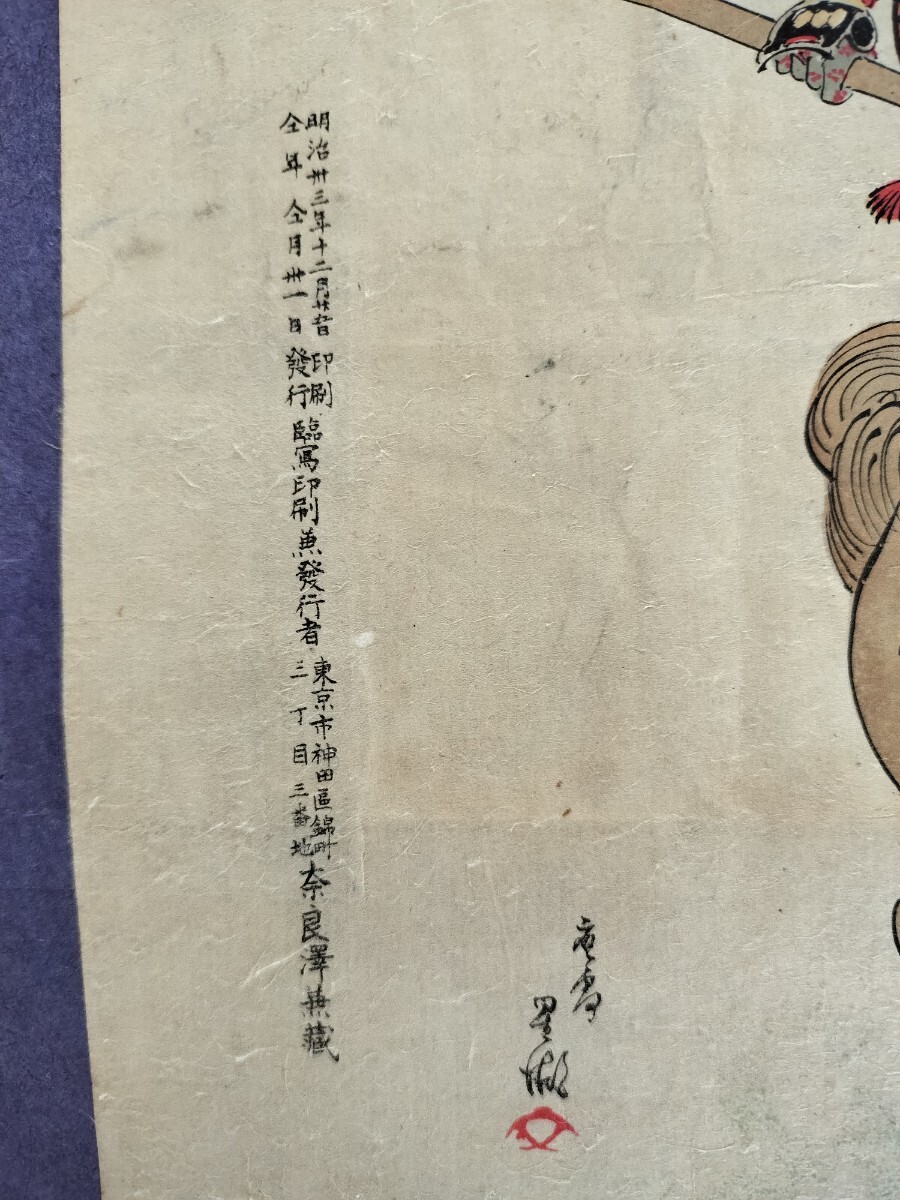 明治卅三年十二月廿五日印刷
仝年仝月卅一日發行
臨寫印刷兼發行者
東京市神田區錦町
三丁目三番地
奈良澤兼藏